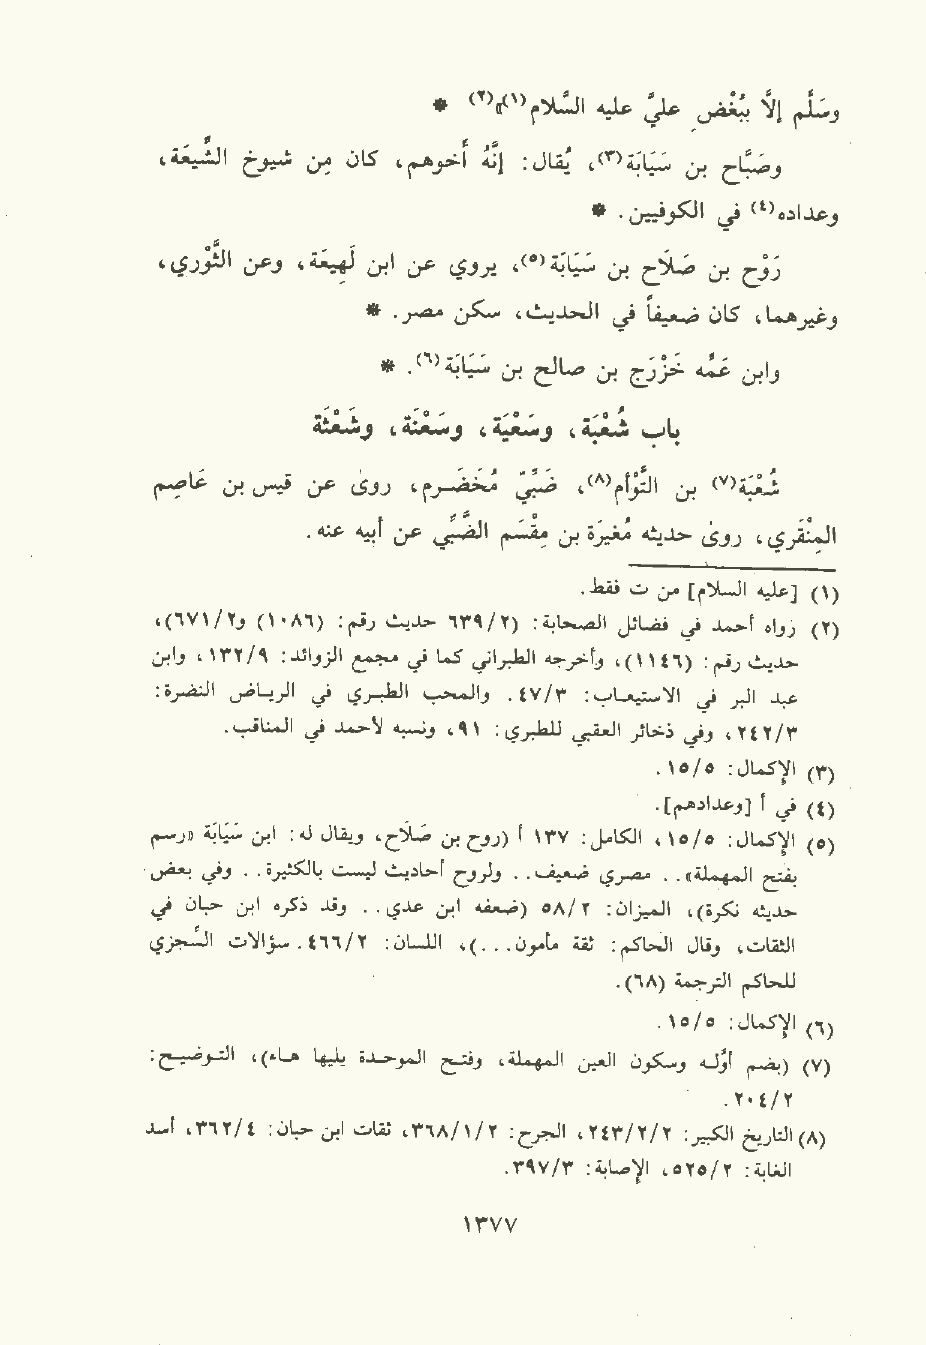 وسَلَّم إلَّا بِبُغْضِ عليٍّ عليه السَّلام(١)»(٢) *
وصَبَّاح بن سَيَابَة(٣)، يُقال: إنَّهُ أخوهم، كان مِن شيوخ الشِّيعَة،
وعداده(٤) في الكوفيين. *
رَوْح بن صَلَاح بن سَيَابَة(٥)، يروي عن ابن لَهِيعَة، وعن الثَّوْري،
وغيرهما، كان ضعيفاً في الحديث، سكن مصر. *
وابن عَمِّه خَزْرَج بن صالح بن سَيَابَة(٦). *
باب شُعْبَة، وسَعْيَة، وسَعْنَة، وشَعْثَة
شُعْبَة(٧) بن التَّوْأم(٨)، ضَبِّيّ مُخَضْرم، روىٰ عن قيس بن عَاصِم
المِنْقَري، روىٰ حديثه مُغيرَة بن مِقْسَم الضَّبِّي عن أبيه عنه.
(١) [عليه السلام] من ت فقط.
(٢) رواه أحمد في فضائل الصحابة: (٢/ ٦٣٩ حديث رقم: (١٠٨٦) و٢/ ٦٧١)،
حديث رقم: (١١٤٦)، وأخرجه الطبراني كما في مجمع الزوائد: ٩/ ١٣٢، وابن
عبد البر في الاستيعاب: ٣/ ٤٧. والمحب الطبري في الرياض النضرة:
٣/ ٢٤٢، وفي ذخائر العقبي للطبري: ٩١، ونسبه لأحمد في المناقب.
(٣) الإكمال: ٥/ ١٥.
(٤) في أ [وعدادهم].
(٥) الإكمال: ٥/ ١٥، الكامل: ١٣٧ أ (روح بن صَلَاح، ويقال له: ابن سَيَابَة «رسم
بفتح المهملة».. مصري ضعيف.. ولروح أحاديث ليست بالكثيرة.. وفي بعض
حديثه نكرة)، الميزان: ٢/ ٥٨ (ضعفه ابن عدي.. وقد ذكره ابن حبان في
الثقات، وقال الحاكم: ثقة مأمون...)، اللسان: ٢/ ٤٦٦. سؤالات السِّجزي
للحاكم الترجمة (٦٨).
(٦) الإكمال: ٥/ ١٥.
(٧) (بضم أوَّله وسكون العين المهملة، وفتح الموحدة يليها هاء)، التوضيح:
٢/ ٢٠٤.
(٨) التاريخ الكبير: ٢/٢/ ٢٤٣، الجرح: ٢/١/ ٣٦٨، ثقات ابن حبان: ٤/ ٣٦٢، أسد
الغابة: ٢/ ٥٢٥، الإصابة: ٣/ ٣٩٧.
١٣٧٧